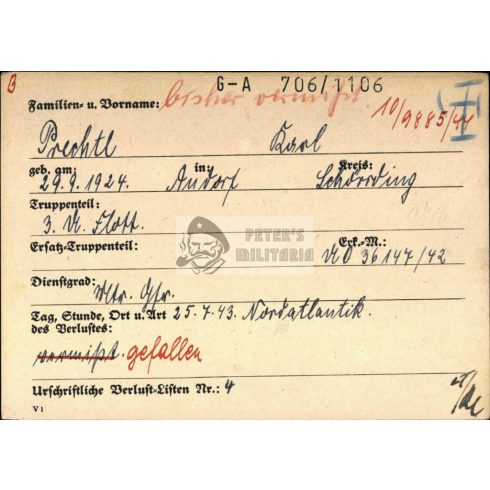 B
G-A 706/1106
Familien- u. Vorname: bisher vermißt.
10/9885/44
Prechtl Karl
geb. am: in: Kreis:
29.9.1924. Andorf Schärding
Truppenteil:
3. U. Flott.
PETER'S
MILITARIA
Ersatz-Truppenteil: Erk.-M.:
UO 36147/42
Dienstgrad:
Mtr. Gfr.
Tag, Stunde, Ort u. Art 25.7.43. Nordatlantik.
des Verlustes:
vermißt. gefallen
Urschriftliche Verlust-Listen Nr.: 4
V1